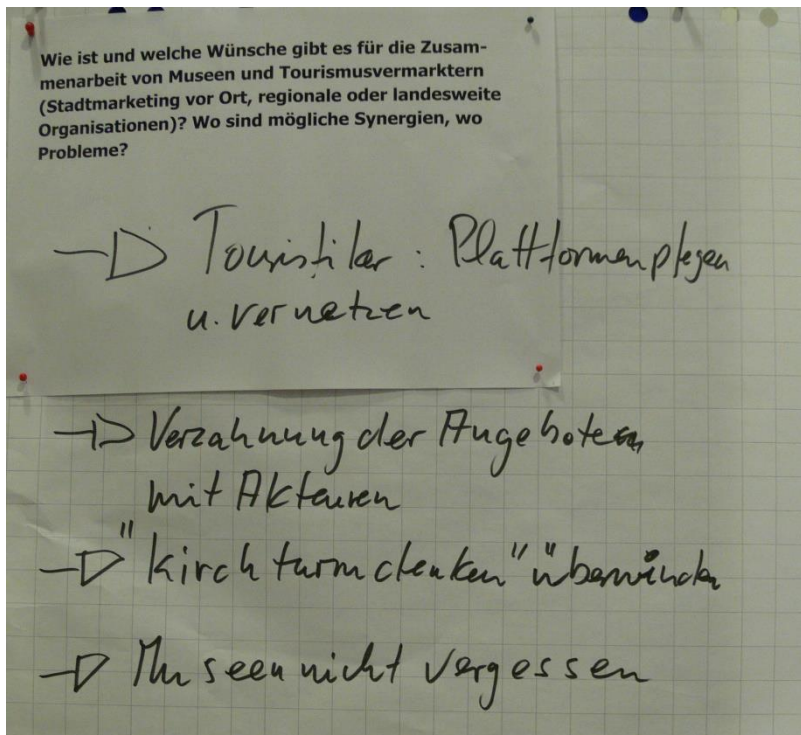 Wie ist und welche Wünsche gibt es für die Zusam-
menarbeit von Museen und Tourismusvermarktern
(Stadtmarketing vor Ort, regionale oder landesweite
Organisationen)? Wo sind mögliche Synergien, wo
Probleme?
→ Touristiker: Plattformen pflegen
u. vernetzen
→ Verzahnung der Angebote
mit Akteuren
→ "Kirchturmdenken" überwinden
→ Museen nicht vergessen